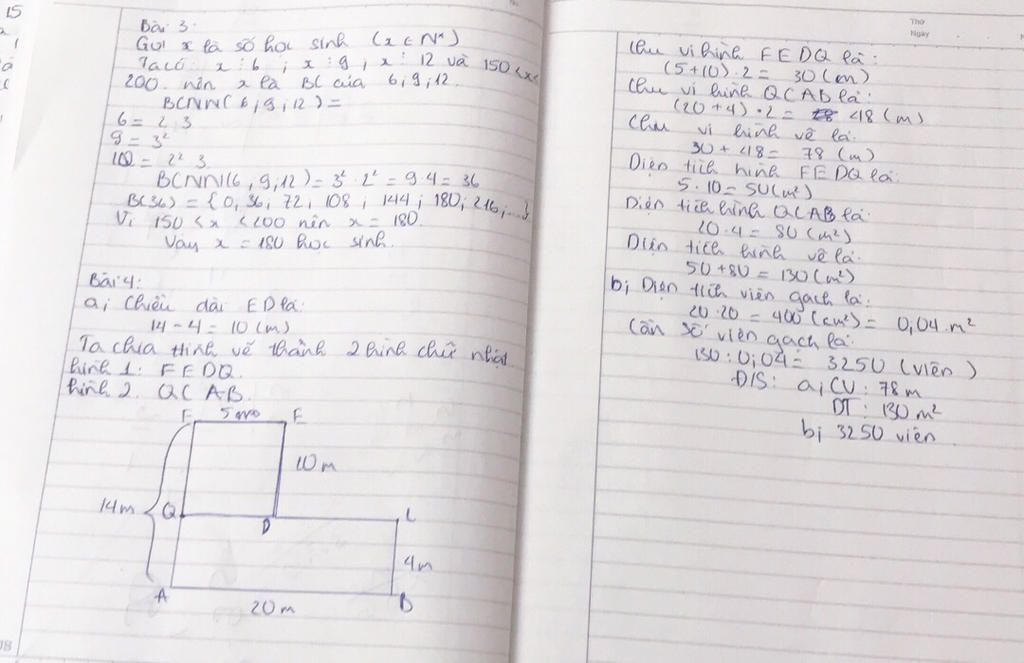 15
Bài 3:
Gọi x là số học sinh (x ∈ N*)
Ta có x ⋮ 6 ; x ⋮ 9 , x ⋮ 12 và 150 < x <
200 nên x là BC của 6, 9, 12.
BCNN(6, 9, 12) =
6 = 2.3
9 = 3²
12 = 2² 3
BCNN(6, 9, 12) = 3² . 2² = 9.4 = 36
B(36) = {0, 36, 72, 108, 144, 180, 216, ...}
Vì 150 < x < 200 nên x = 180.
Vậy x = 180 học sinh.
Bài 4:
a; Chiều dài ED là:
14 - 4 = 10 (m)
Ta chia hình vẽ thành 2 hình chữ nhật
hình 1: FEDQ.
hình 2. QCAB.
F 5m E
10 m
14m
Q D C
4m
A 20 m B
Thứ
Ngày
Chu vi hình FEDQ là:
(5+10) . 2 = 30 (m)
Chu vi hình QCAB là:
(20 + 4) . 2 = 48 (m)
Chu vi hình vẽ là:
30 + 48 = 78 (m)
Diện tích hình FEDQ là:
5 . 10 = 50 (m²)
Diện tích hình QCAB là:
20 . 4 = 80 (m²)
Diện tích hình vẽ là:
50 + 80 = 130 (m²)
b; Diện tích viên gạch là:
20 . 20 = 400 (cm²) = 0,04 m²
Cần số viên gạch là:
130 : 0,04 = 3250 (viên)
Đ/S: a; CV: 78 m
DT: 130 m²
b; 3250 viên.